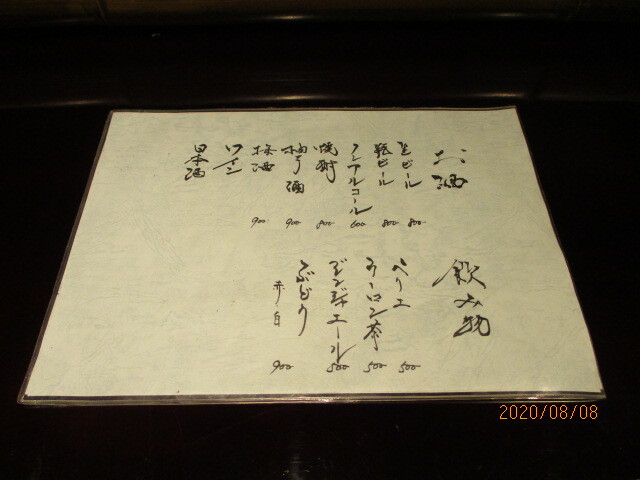 お酒
生ビール 800
瓶ビール 800
ノンアルコール 600
焼酎 800
柚子酒 900
梅酒 900
ワイン
日本酒
飲み物
ペリエ 500
ウーロン茶 500
ジンジャエール 500
ぶどう 赤・白 900
2020/08/08